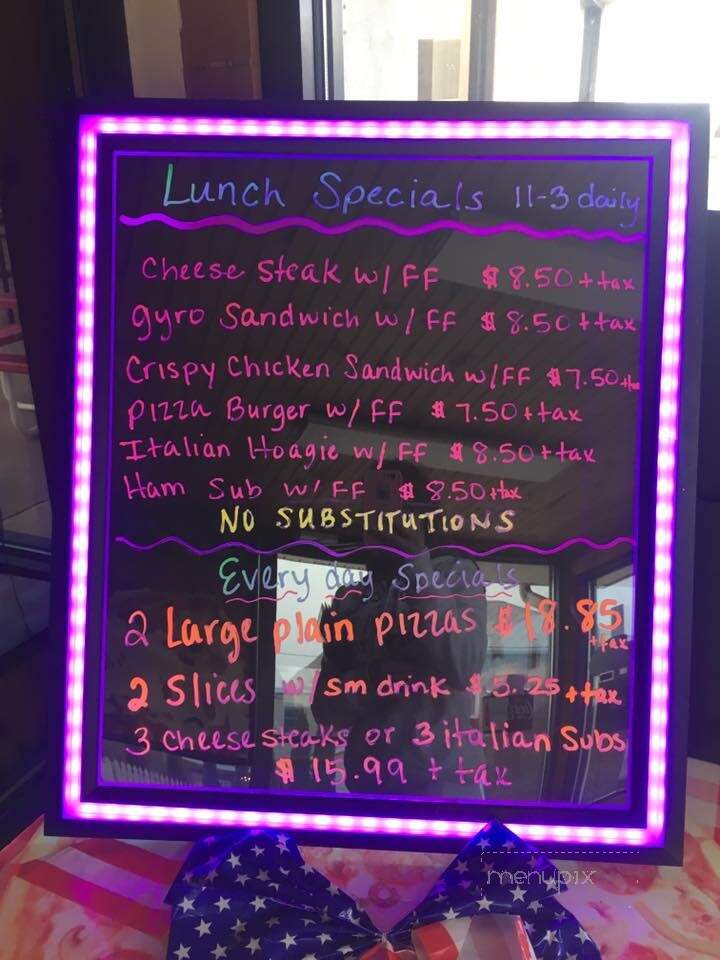 Lunch Specials 11-3 daily
Cheese Steak w/ FF $8.50 + tax
gyro Sandwich w/ FF $8.50 + tax
Crispy Chicken Sandwich w/FF $7.50 + tax
Pizza Burger w/ FF $7.50 + tax
Italian Hoagie w/ FF $8.50 + tax
Ham Sub w/ FF $8.50 + tax
NO SUBSTITUTIONS
Every day Specials
2 Large plain pizzas $18.85
+ tax
2 Slices w/ sm drink $5.25 + tax
3 cheese steaks or 3 italian Subs
$15.99 + tax
menupix